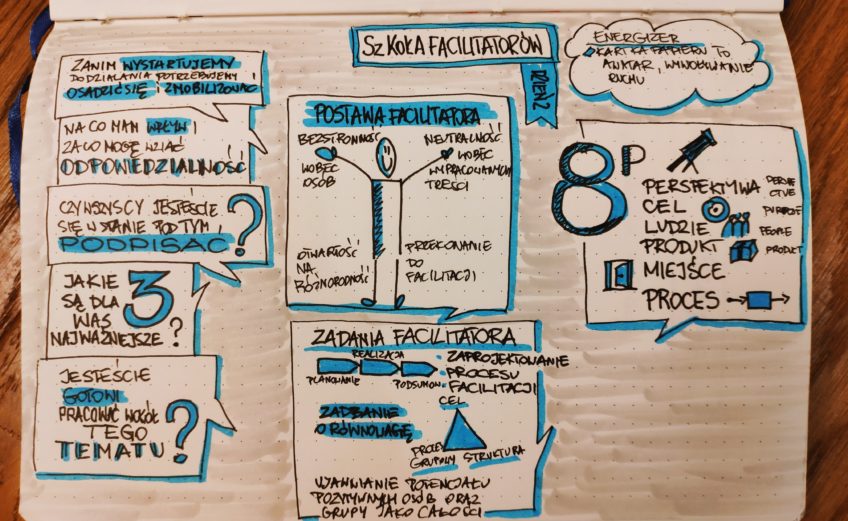 SZKOŁA FACILITATORÓW
DZIEŃ 2
ZANIM WYSTARTUJEMY
DO DZIAŁANIA POTRZEBUJEMY
OSADZIĆ SIĘ I ZMOBILIZOWAĆ
NA CO MAM WPŁYW I
ZA CO MOGĘ WZIĄĆ
ODPOWIEDZIALNOŚĆ
CZY WSZYSCY JESTEŚCIE
SIĘ W STANIE POD TYM
PODPISAĆ ?
JAKIE 3
SĄ DLA
WAS
NAJWAŻNIEJSZE ?
JESTEŚCIE
GOTOWI
PRACOWAĆ WOKÓŁ
TEGO
TEMATU ?
POSTAWA FACILITATORA
BEZSTRONNOŚĆ
WOBEC
OSÓB
NEUTRALNOŚĆ
WOBEC
WYPRACOWANYCH
TREŚCI
OTWARTOŚĆ
NA
RÓŻNORODNOŚĆ
PRZEKONANIE
DO
FACILITACJI
ZADANIA FACILITATORA
REALIZACJA
PLANOWANIE
PODSUMOW.
ZAPROJEKTOWANIE
PROCESU
FACILITACJI
ZADBANIE
O RÓWNOWAGĘ
CEL
PROCES
GRUPOWY
STRUKTURA
UJAWNIANIE POTENCJAŁU
POZYTYWNYCH OSÓB ORAZ
GRUPY JAKO CAŁOŚCI
ENERGIZER
KARTKA PAPIERU TO
AWATAR, WYKONYWANIE
RUCHU
8P
PERSPEKTYWA PERSPECTIVE
CEL PURPOSE
LUDZIE PEOPLE
PRODUKT PRODUKT
MIEJSCE
PROCES